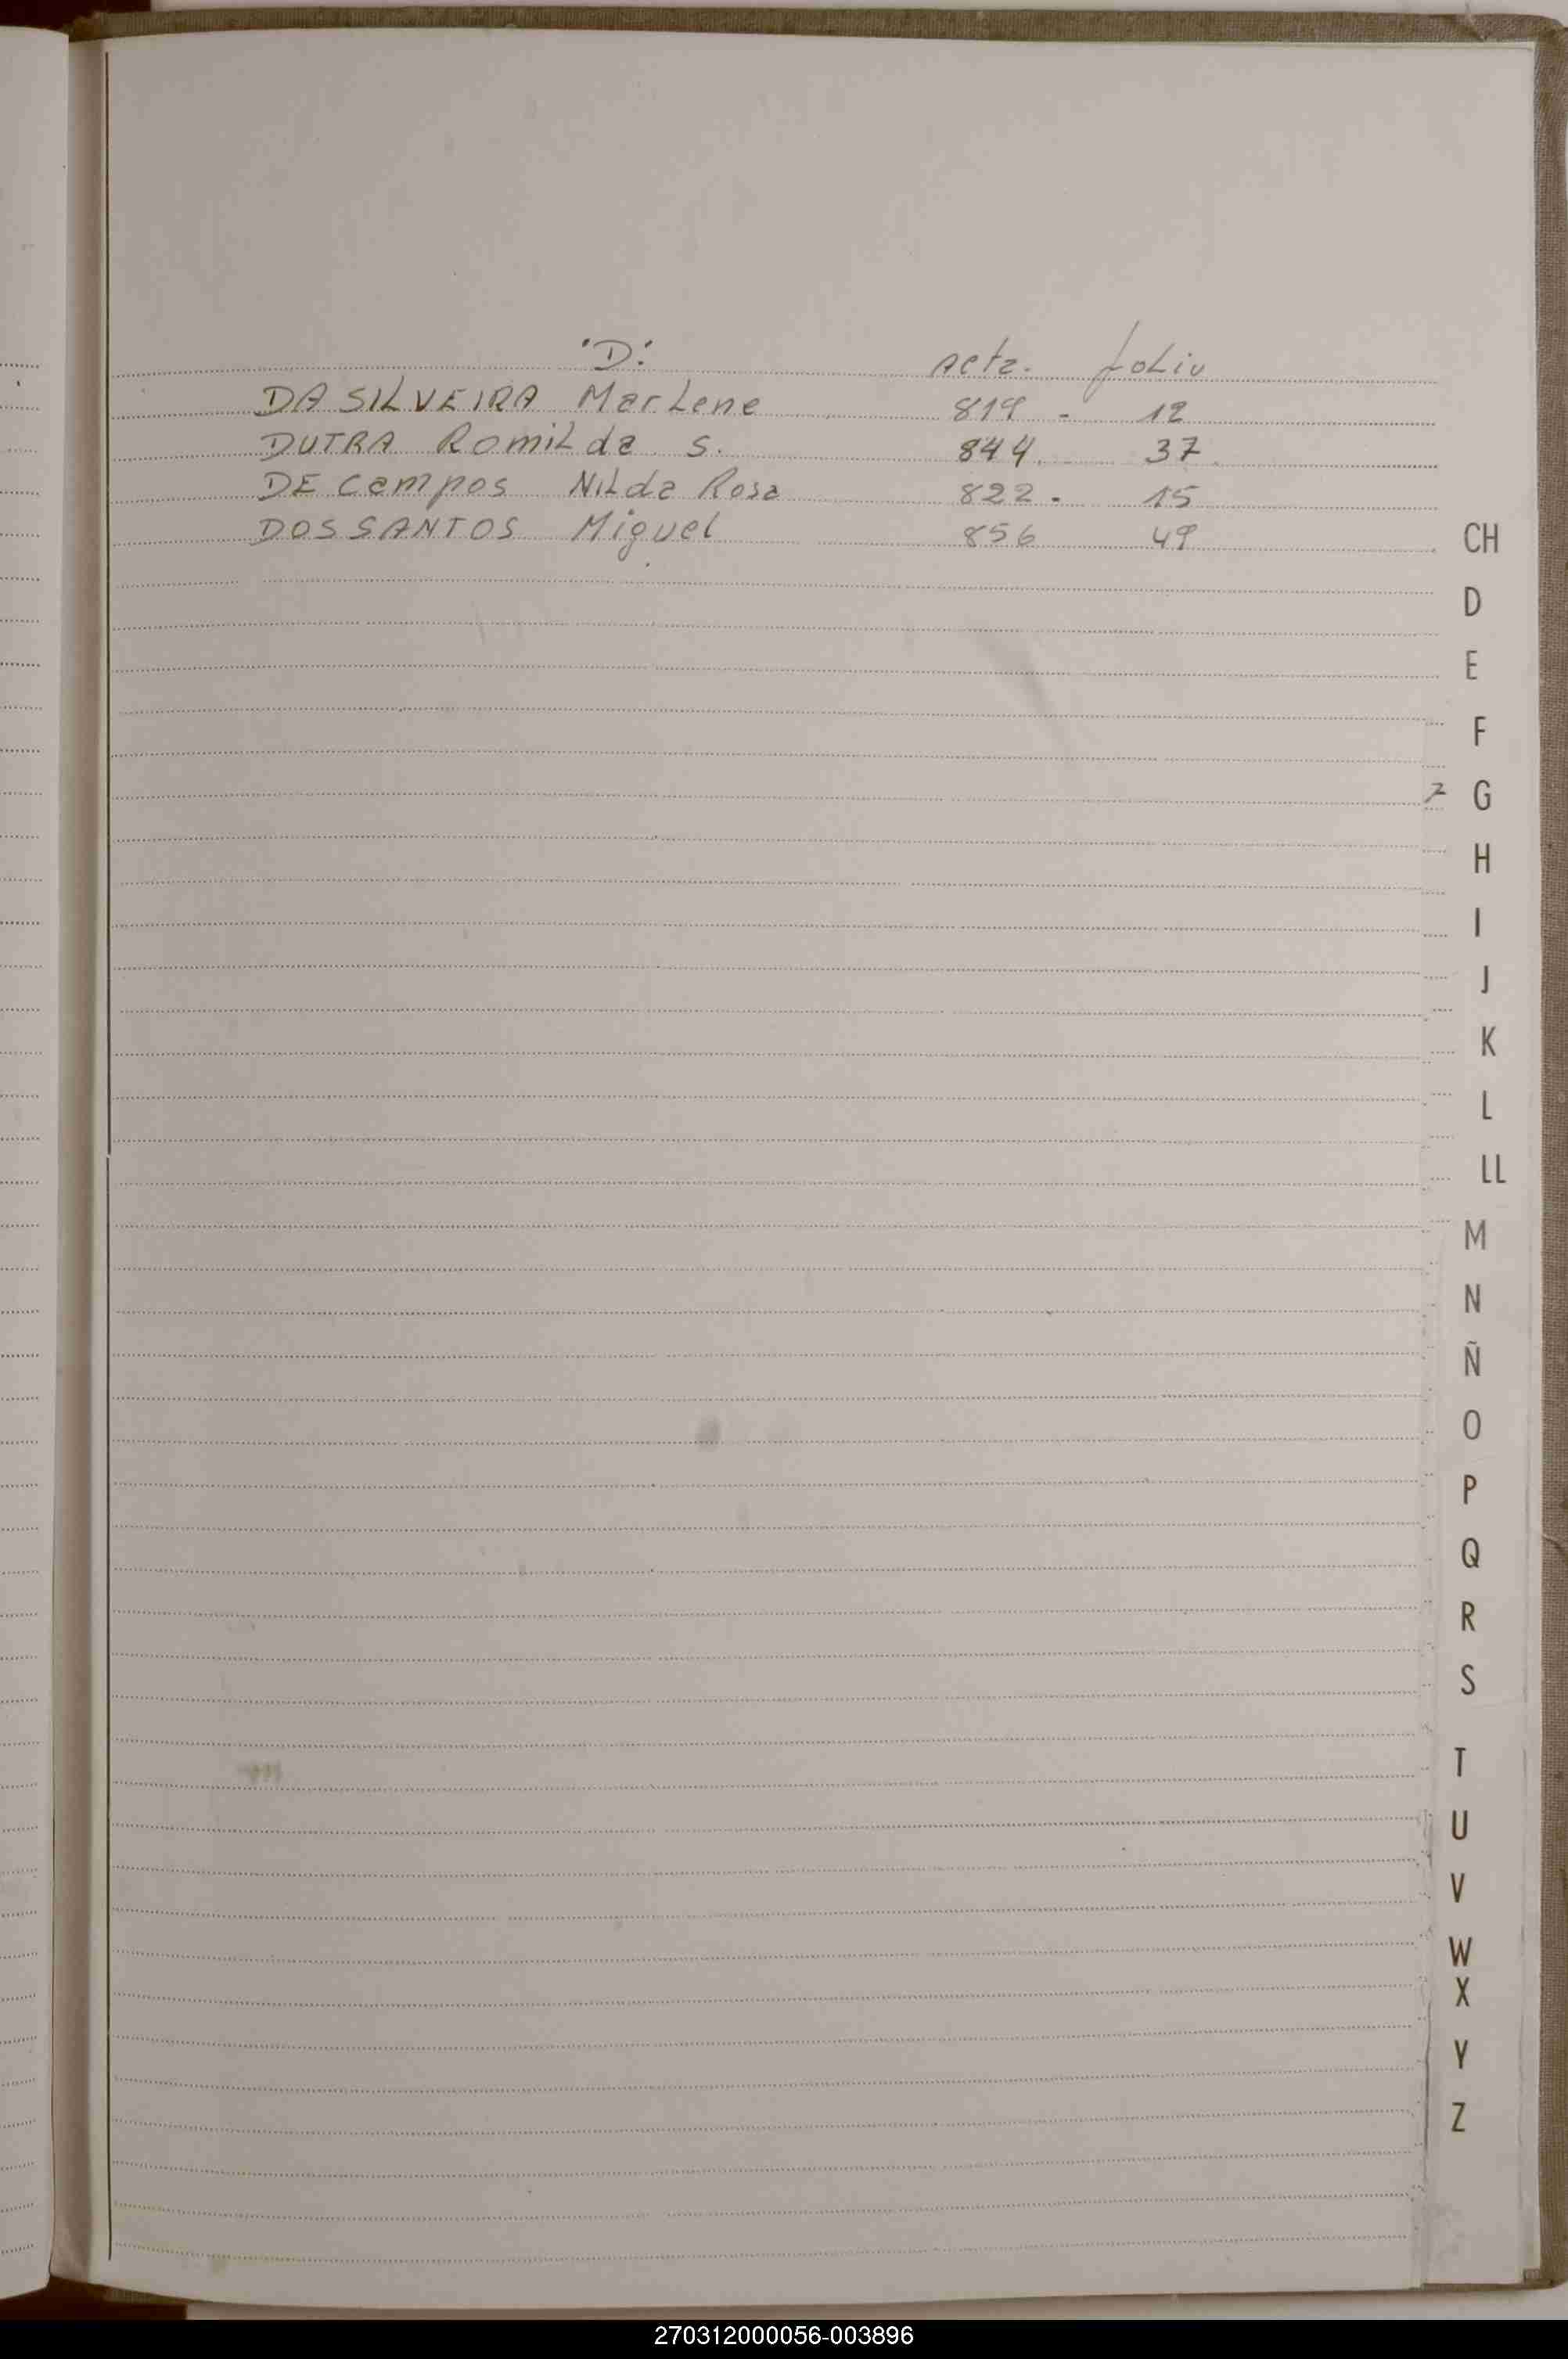 "D" Acta. folio
DA SILVEIRA Marlene 819 - 12
DUTRA Romilda S. 844. 37
DE Campos Nilda Rosa 822 - 15
DOS SANTOS Miguel 856 49
CH
D
E
F
G
H
I
J
K
L
LL
M
N
Ñ
O
P
Q
R
S
T
U
V
W
X
Y
Z
270312000056-003896